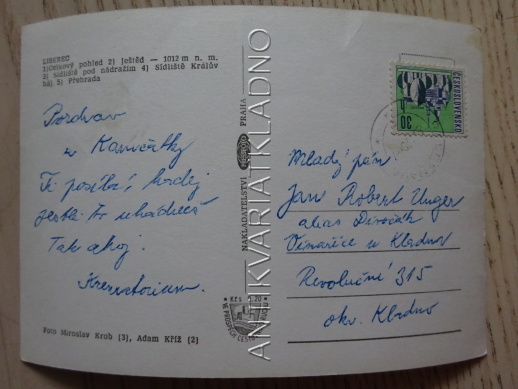 LIBEREC
1) Celkový pohled 2) Ještěd — 1012 m n. m.
3) Sídliště pod nádražím 4) Sídliště Králův
háj 5) Přehrada
Pozdrav
z
Ti posílá, hádej
jestli to uhádneš
Tak ahoj.
Foto Miroslav Krob (3), Adam Kříž (2)
NAKLADATELSTVÍ ORBIS PRAHA
ANTIKVARIATKLADNO
Kčs 1,20
ČESKOSLOVENSKO
30 h
Mladý pán
Jan Robert Unger
alias Divočák
Vinařice u Kladna
Revoluční 315
okr. Kladno